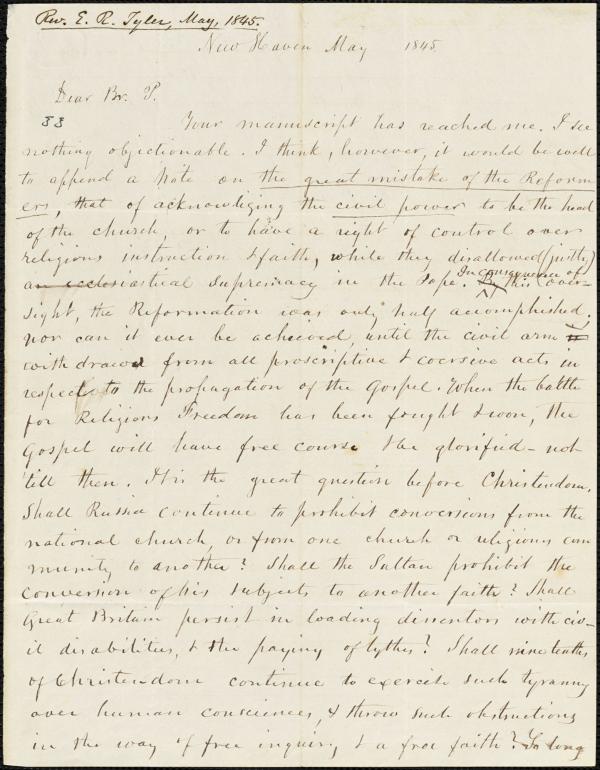 Rev. E. R. Tyler, May, 1845.
New Haven May 1845
Dear Br. P.
33
Your manuscript has reached me. I see
nothing objectionable. I think, however, it would be well
to append a Note on the great mistake of the Reform
ers, that of acknowliging the civil power to be the head
of the church, or to have a right of control over
religious instruction & faith, while they disallowed (justly)
an ecclesiastical Supremacy in the Pope. In consequence of this (over-
sight, the Reformation was only half accomphished,
nor can it ever be achieved, until the civil arm is
withdrawn from all proscriptive & coersive acts in
respect to the propagation of the Gospel. When the battle
for Religious Freedom has been fought & won, the
Gospel will have free course & be glorified - not
'till then. It is the great question before Christendom.
Shall Russia continue to prohibit conversions from the
national church, or from one church or religious com
munity to another? Shall the Sultan prohibit the
conversion of his subjects to another faith? Shall
Great Britain persist in loading dissenters with civ-
il disabilities, & the paying of tythes? Shall nine tenths
of Christendom continue to exercise such tyranny
over human consciences, & throw such obstructions
in the way of free inquiry, & a free faith? So long